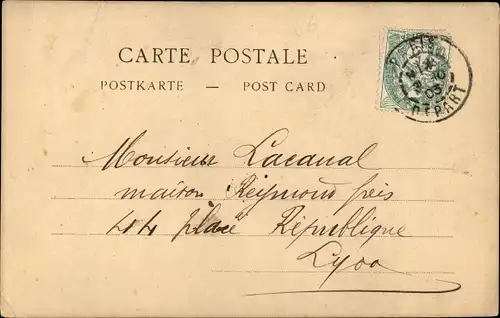 CARTE POSTALE
POSTKARTE — POST CARD
PARIS
03
DEPART
Monsieur Lacanal
maison Reymond frès
place République
Lyon